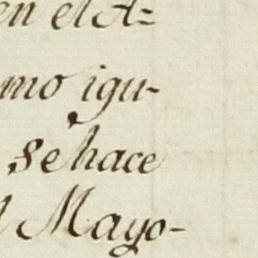 en el A=
mo igu-
, se hace
l Mayo-